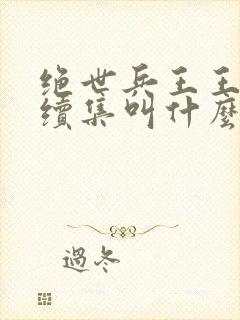 绝世兵王王
續集叫什麼
過冬